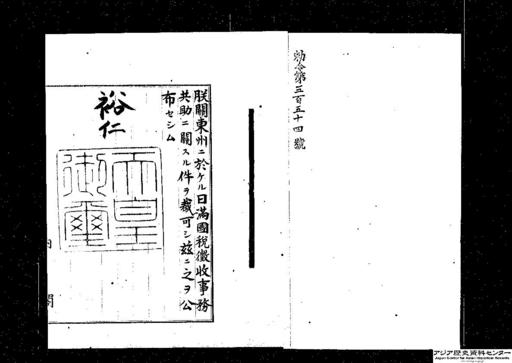 勅令第三百五十四號
朕關東州ニ於ケル日滿國稅徵收事務
共助ニ關スル件ヲ裁可シ茲ニ之ヲ公
布セシム
裕仁
天皇
御璽
内閣
アジア歴史資料センター
Japan Center for Asian Historical Records